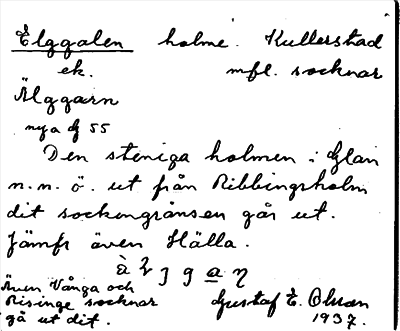 Elggalen holme. Kullerstad
ek. mfl. socknar
Älggarn
nya 55
Den steniga holmen i Glan
n.n.ö. ut från Ribbingsholm
dit sockengränsen går ut.
Jämfr även Hälla.
Även Vånga och
Risinge socknar
gå ut dit.
Gustaf E. Olsson
1937.